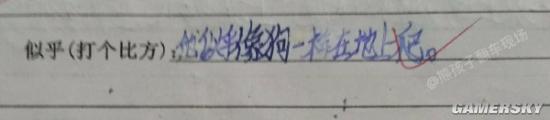 似乎(打个比方):他似乎像狗一样在地上爬。
@熊孩子翻车现场
GAMERSKY